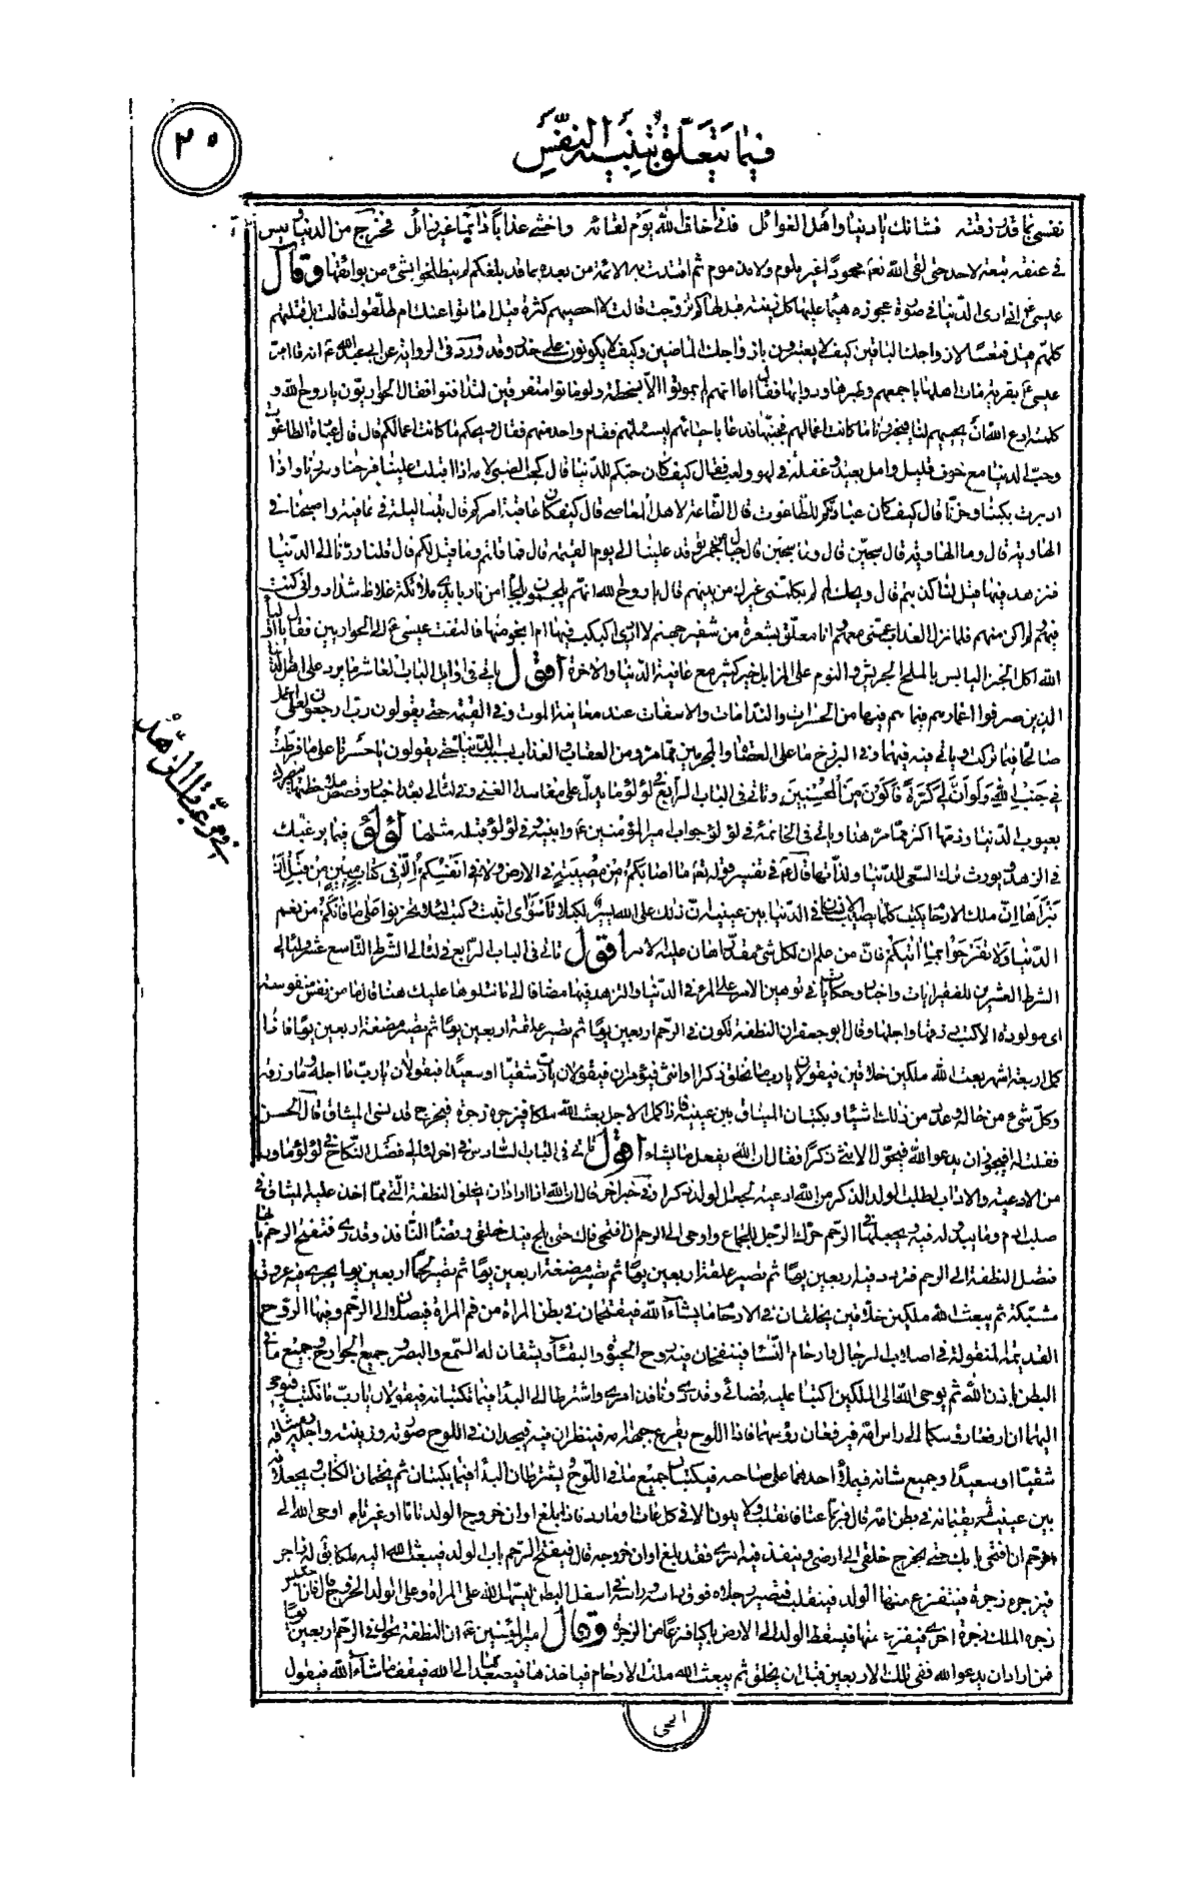 فيما يتعلق بتنبيه النفس
٢٥
نفسي بما قد رزقته فشأنك يا دنيا واهل الغوائل فاني اخاف الله يوم لقائه واخشى عذابا دائما غير زائل فخرج من الدنيا وليس
في عنقه تبعة لاحد حتى لقى الله نعم محمودا غير ملوم ولا مذموم ثم اقتدت به الائمة من بعده بما قد بلغكم لم يتطلخوا بشئ من بوائقها وقال
عيسى اني ارى الدنيا في صورة عجوزة هتماء عليها كل زينة قيل لها كم تزوجت قالت لا احصيهم كثرة قيل اماتوا عنك ام طلقوك قالت بل قتلتهم
كلهم قيل فتعسا لازواجك الباقين كيف لا يعتبرون بازواجك الماضين وكيف لا يكونون على حذر وقد ورد في الرواية عن ابي عبد الله ع انه قال مر
عيسى بقرية مات اهلها باجمعهم وطيرها ودوابها فقال اما انهم لم يموتوا الا بسخطة ولو ماتوا متفرقين لتدافنوا فقال الحواريون يا روح الله و
كلمته ادع الله ان يحييهم لنا فيخبرونا ما كانت اعمالهم فنجتنبها فدعا باحيائهم ليسئلهم فقام واحد منهم فقال ويحكم ما كانت اعمالكم قال قال عبادة الطاغوت
وحب الدنيا مع خوف قليل وامل بعيد وغفلة في لهو ولعب فقال كيف كان حبكم للدنيا قال كحب الصبى لامه اذا اقبلت علينا فرحنا وسررنا واذا
ادبرت بكينا وحزنا قال كيف كان عبادتكم للطاغوت قال الطاعة لاهل المعاصي قال كيف كان عاقبة امركم قال بتنا ليلة في عافية واصبحنا في
الهاوية قال وما الهاوية قال سجين قال وما سجين قال جبال من جمر توقد علينا الى يوم القيمة قال فما قلتم وما قيل لكم قال قلنا ردنا الى الدنيا
فنزهد فيها قيل لنا كذبتم قال ويحك لم لم يكلمني غيرك من بينهم قال يا روح الله انهم ملجمون بلجام من نار بايدي ملائكة غلاظ شداد واني كنت
فيهم ولم اكن منهم فلما نزل العذاب عمني معهم وانا معلق بشعرة من شفير جهنم لا ادري اكبكب فيها ام انجو منها فالتفت عيسى ع الى الحواريين فقال يا اولياء
الله اكل الخبز اليابس بالملح الجريش والنوم على المزابل خير كثير مع عافية الدنيا والاخرة اقول ياتي في اوايل الباب العاشر ما يرد على اهل الدنيا
الذين صرفوا اعمارهم فيما هم فيها من الحسرات والندامات والاسفات عند معاينة الموت وفي القيمة حتى يقولون رب ارجعون لعلي اعمل
صالحا فيما تركت وياتي فيه فيها وفي البرزخ ما على العصاة والمجرمين مما مر ومن العقاب والعذاب بسبب الدنيا حتى يقولون يا حسرتا على ما فرطت
في جنب الله ولو ان لي كرة فاكون من المحسنين وتاتي في الباب الرابع في لؤلؤ ما يدل على مفاسد الغنى وفي لئالي بعده اخبار وقصص
بعيوب الدنيا وذمها اكثر مما مر هنا وياتي في الخاتمة في لؤلؤ جواب امير المؤمنين ع وابنيه وفي لؤلؤ قبله مثلها لؤلؤ فيما يرغبك
في الزهد ويورث ترك السعى للدنيا ولذاتها قال ع في تفسير قوله تعم ما اصابكم من مصيبة في الارض ولا في انفسكم الا في كتاب مبين من قبل ان
نبرأها ان ملك الارحام يكتب كلما يصيب الانسان في الدنيا بين عينيه ان ذلك على الله يسير لكيلا تأسوا اى اثبت وكتب لئلا تحزنوا على ما فاتكم من نعم
الدنيا ولا تفرحوا بما اتيكم فان من علم ان لكل شئ مقدرا هان عليه الامر اقول تاتي في الباب الرابع في لئالي الشرط التاسع عشر ولئالى
الشرط العشرين للفقير ايات واخبار وحكايات في توهين الامر على المرء في الدنيا والزهد فيها مضافا الى ما نتلوها عليك هنا قال ما من نفس منفوسة
اى مولودة الا كتب رزقها واجلها وقال ابو جعفر ان النطفة تكون في الرحم اربعين يوما ثم تصير علقة اربعين يوما ثم تصير مضغة اربعين يوما فاذا
كمل اربعة اشهر بعث الله ملكين خلاقين فيقولان يا رب ما نخلق ذكرا او انثى فيؤمران فيقولان يا رب شقيا او سعيدا فيقولان يا رب ما اجله وما رزقه
وكل شئ من حاله وعدد من ذلك اشياء ويكتبان الميثاق بين عينيه فاذا كمل الاجل بعث الله ملكا فيزجره زجرة فيخرج قد نسى الميثاق قال الحسن
فقلت له افيجوز ان يدعو الله فيحول الانثى ذكرا فقال ان الله يفعل ما يشاء اقول تاتي في الباب السادس في اخر لئالى فضل النكاح في لؤلؤ ما ورد
من الادعية والاداب لطلب الولد الذكر من الله ادعية لجعل لولد ذكرا وفي خبر اخر قال ان الله اذا اراد ان يخلق النطفة التي مما اخذ عليه الميثاق في
صلب ادم وما يبدو له فيه ويجعلها في الرحم حرك الرجل للجماع واوحى الى الرحم ان افتحي بابك حتى يلج فيك خلقي وقضائى النافذ وقدري فتفتح الرحم بابها
فتصل النطفة الى الرحم فتردد فيه اربعين يوما ثم تصير علقة اربعين يوما ثم تصير مضغة اربعين يوما ثم تصير لحما اربعين يوما يجرى فيه عروق
مشتبكة ثم يبعث الله ملكين خلاقين يخلقان في الارحام ما يشاء الله فيقتحمان في بطن المراة من فم المراة فيصلان الى الرحم وفيها الروح
القديمة المنقولة في اصلاب الرجال وارحام النساء فينفخان فيه روح الحيوة والبقاء ويشقان له السمع والبصر وجميع الجوارح وجميع ما في
البطن باذن الله ثم يوحى الله الى الملكين اكتبا عليه قضائي وقدري ونافذ امري واشترطا لي البدأ فيما تكتبانه فيقولان يا رب ما نكتب فيوحى
اليهما ان ارفعا رؤسكما الى راس امه فيرفعان رؤسهما فاذا اللوح يقرع جبهة امه فينظران فيه فيجدان في اللوح صورته وزينته واجله وميثاقه
شقيا او سعيدا وجميع شانه فيملى احدهما على صاحبه فيكتبا جميع ما في اللوح ويشترطان البدأ فيما يكتبان ثم يختمان الكتاب ويجعلانه
بين عينيه ثم يقيمانه في بطن امه قال فربما عتا فانقلب ولا يكون الا في كل عات او مارد فاذا بلغ اوان خروج الولد تاما او غير تام اوحى الله الى
الرحم ان افتحي بابك حتى يخرج خلقي الى ارضي وينفذ فيه امري فقد بلغ اوان خروجه قال فيفتح الرحم باب الولد فيبعث الله اليه ملكا يقال له زاجر
فيزجره زجرة فيتفزع منها الولد فينقلب فتصير رجلاه فوق راسه وراسه في اسفل البطن ليسهل الله على المراة وعلى الولد الخروج قال فاذا احتبس
زجره الملك زجرة اخرى فيفزع منها فيسقط الولد الى الارض باكيا فزعا من الزجرة وقال امير المؤمنين ع ان النطفة تحول في الرحم اربعين يوما
فمن اراد ان يدعو الله ففي تلك الاربعين قبل ان يخلق ثم يبعث الله ملك الارحام فياخذها فيصعد بها الى الله فيقف ما شاء الله فيقول
الهى